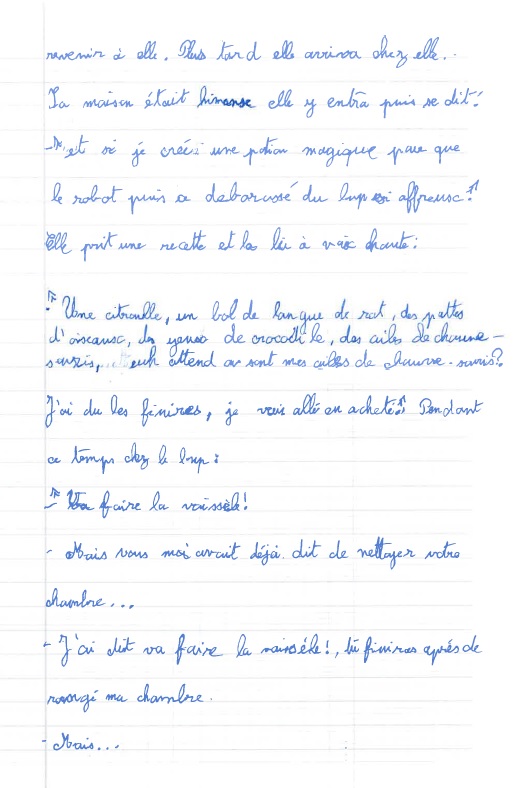 revenir à elle. Plus tard elle arriva chez elle..
Sa maison était himense elle y entra puis se dit:
-" et si je créé une potion magique pour que
le robot puis a debarassé du loup si affreuse!"
Elle prit une recette et la lu à voix haute:
-" Une citrouille, un bol de langue de rat, des pattes
d'oiseause, des yeuse de crocodile, des ailes de chauve-
souris, euh attend ou sont mes ailes de chauve-souris?
J'ai du les finires, je vais allé en acheté!" Pendant
ce temps chez le loup:
-" Va faire la vaissèle!
- Mais vous moi avait déjà dit de nettoyer votre
chambre...
- J'ai dit va faire la vaissèle!, tu finiras après de
rangé ma chambre.
- Mais...